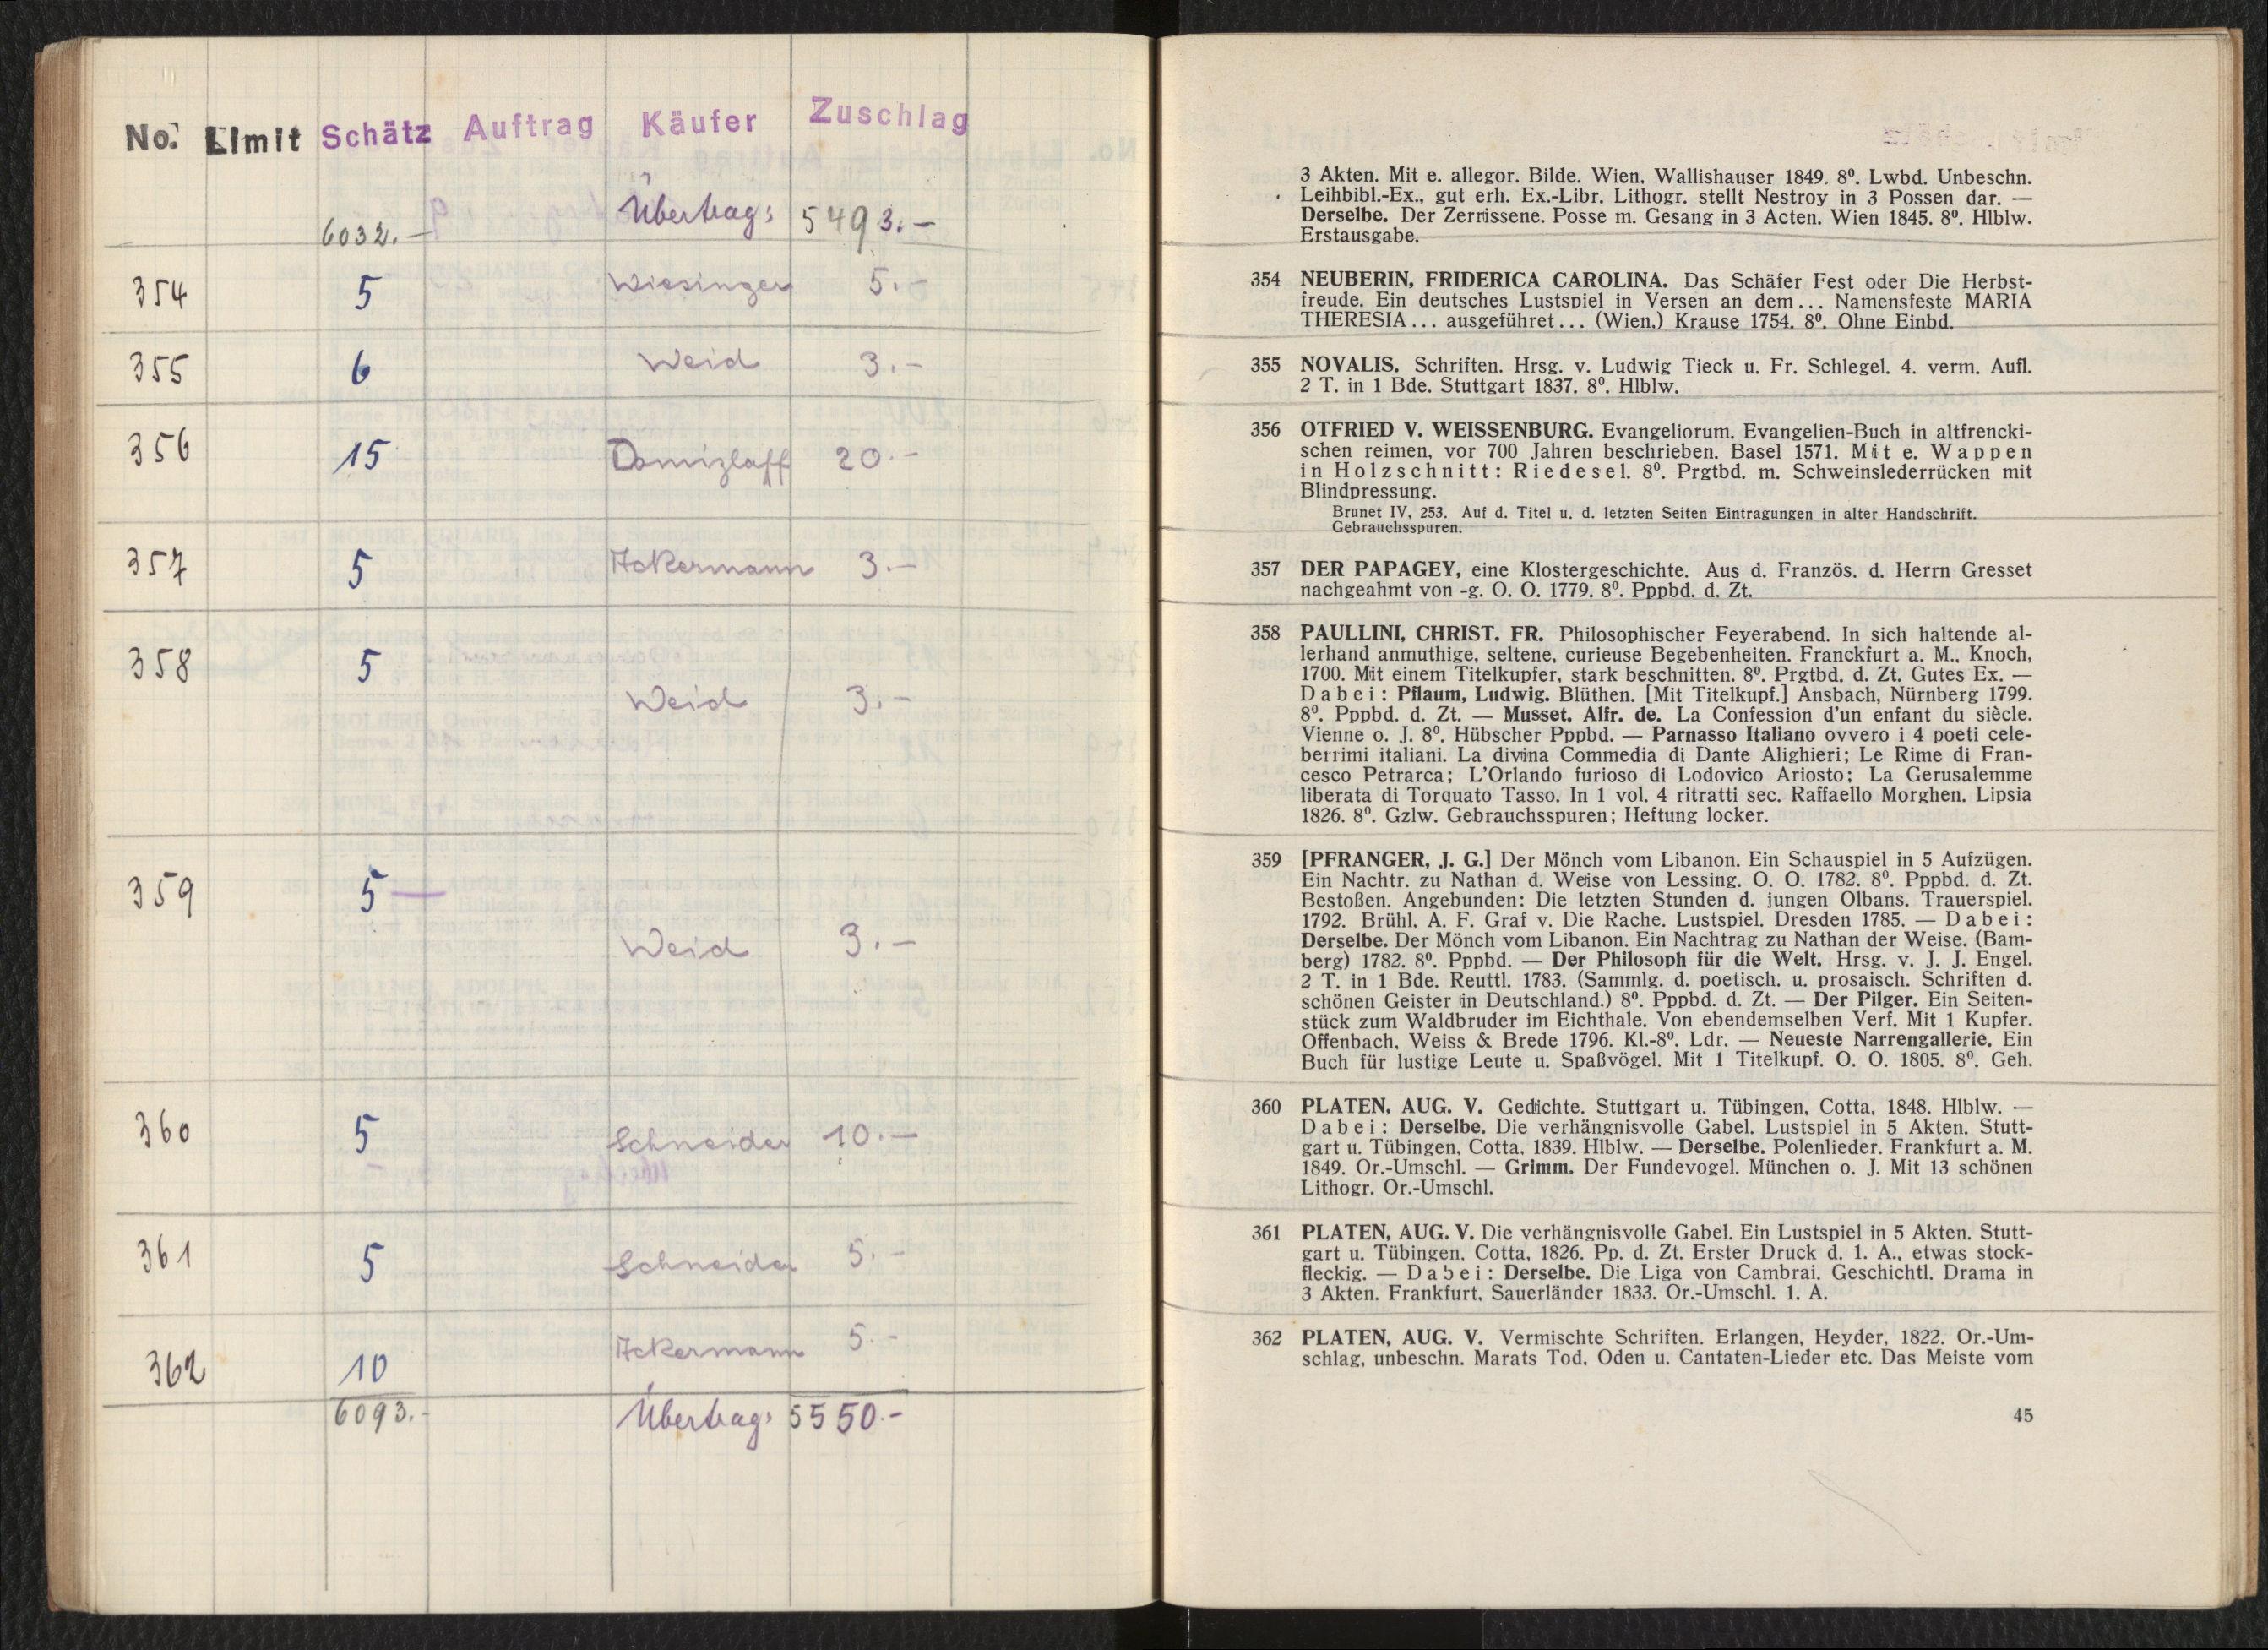 No. Limit Schätz Auftrag Käufer Zuschlag
6032.— Übertrag: 5493.—
354 5 Wiesinger 5.—
355 6 Weid 3.—
356 15 Domizlaff 20.—
357 5 Ackermann 3.—
358 5 Weid 3.—
359 5 — Weid 3.—
360 5 Schneider 10.—
361 5 Schneider 5.—
362 10 Ackermann 5.—
6093.- Übertrag: 5550.-
3 Akten. Mit e. allegor. Bilde. Wien, Wallishauser 1849. 8⁰. Lwbd. Unbeschn.
Leihbibl.-Ex., gut erh. Ex.-Libr. Lithogr. stellt Nestroy in 3 Possen dar. —
Derselbe. Der Zerrissene. Posse m. Gesang in 3 Acten. Wien 1845. 8⁰. Hlblw.
Erstausgabe.
354 NEUBERIN, FRIDERICA CAROLINA. Das Schäfer Fest oder Die Herbst-
freude. Ein deutsches Lustspiel in Versen an dem... Namensfeste MARIA
THERESIA... ausgeführet... (Wien,) Krause 1754. 8⁰. Ohne Einbd.
355 NOVALIS. Schriften. Hrsg. v. Ludwig Tieck u. Fr. Schlegel. 4. verm. Aufl.
2 T. in 1 Bde. Stuttgart 1837. 8⁰. Hlblw.
356 OTFRIED V. WEISSENBURG. Evangeliorum. Evangelien-Buch in altfrencki-
schen reimen, vor 700 Jahren beschrieben. Basel 1571. Mit e. Wappen
in Holzschnitt: Riedesel. 8⁰. Prgtbd. m. Schweinslederrücken mit
Blindpressung.
Brunet IV, 253. Auf d. Titel u. d. letzten Seiten Eintragungen in alter Handschrift.
Gebrauchsspuren.
357 DER PAPAGEY, eine Klostergeschichte. Aus d. Französ. d. Herrn Gresset
nachgeahmt von -g. O. O. 1779. 8⁰. Pppbd. d. Zt.
358 PAULLINI, CHRIST. FR. Philosophischer Feyerabend. In sich haltende al-
lerhand anmuthige, seltene, curieuse Begebenheiten. Franckfurt a. M., Knoch,
1700. Mit einem Titelkupfer, stark beschnitten. 8⁰. Prgtbd. d. Zt. Gutes Ex. —
Dabei: Pflaum, Ludwig. Blüthen. [Mit Titelkupf.] Ansbach, Nürnberg 1799.
8⁰. Pppbd. d. Zt. — Musset, Alfr. de. La Confession d'un enfant du siècle.
Vienne o. J. 8⁰. Hübscher Pppbd. — Parnasso Italiano ovvero i 4 poeti cele-
berrimi italiani. La divina Commedia di Dante Alighieri; Le Rime di Fran-
cesco Petrarca; L'Orlando furioso di Lodovico Ariosto; La Gerusalemme
liberata di Torquato Tasso. In 1 vol. 4 ritratti sec. Raffaello Morghen. Lipsia
1826. 8⁰. Gzlw. Gebrauchsspuren; Heftung locker.
359 [PFRANGER, J. G.] Der Mönch vom Libanon. Ein Schauspiel in 5 Aufzügen.
Ein Nachtr. zu Nathan d. Weise von Lessing. O. O. 1782. 8⁰. Pppbd. d. Zt.
Bestoßen. Angebunden: Die letzten Stunden d. jungen Olbans. Trauerspiel.
1792. Brühl, A. F. Graf v. Die Rache. Lustspiel. Dresden 1785. — Dabei:
Derselbe. Der Mönch vom Libanon. Ein Nachtrag zu Nathan der Weise. (Bam-
berg) 1782. 8⁰. Pppbd. — Der Philosoph für die Welt. Hrsg. v. J. J. Engel.
2 T. in 1 Bde. Reuttl. 1783. (Sammlg. d. poetisch. u. prosaisch. Schriften d.
schönen Geister in Deutschland.) 8⁰. Pppbd. d. Zt. — Der Pilger. Ein Seiten-
stück zum Waldbruder im Eichthale. Von ebendemselben Verf. Mit 1 Kupfer.
Offenbach, Weiss & Brede 1796. Kl.-8⁰. Ldr. — Neueste Narrengallerie. Ein
Buch für lustige Leute u. Spaßvögel. Mit 1 Titelkupf. O. O. 1805. 8⁰. Geh.
360 PLATEN, AUG. V. Gedichte. Stuttgart u. Tübingen, Cotta, 1848. Hlblw. —
Dabei: Derselbe. Die verhängnisvolle Gabel. Lustspiel in 5 Akten. Stutt-
gart u. Tübingen, Cotta, 1839. Hlblw. — Derselbe. Polenlieder. Frankfurt a. M.
1849. Or.-Umschl. — Grimm. Der Fundevogel. München o. J. Mit 13 schönen
Lithogr. Or.-Umschl.
361 PLATEN, AUG. V. Die verhängnisvolle Gabel. Ein Lustspiel in 5 Akten. Stutt-
gart u. Tübingen, Cotta, 1826. Pp. d. Zt. Erster Druck d. 1. A., etwas stock-
fleckig. — Dabei: Derselbe. Die Liga von Cambrai. Geschichtl. Drama in
3 Akten. Frankfurt, Sauerländer 1833. Or.-Umschl. 1. A.
362 PLATEN, AUG. V. Vermischte Schriften. Erlangen, Heyder, 1822. Or.-Um-
schlag, unbeschn. Marats Tod, Oden u. Cantaten-Lieder etc. Das Meiste vom
45